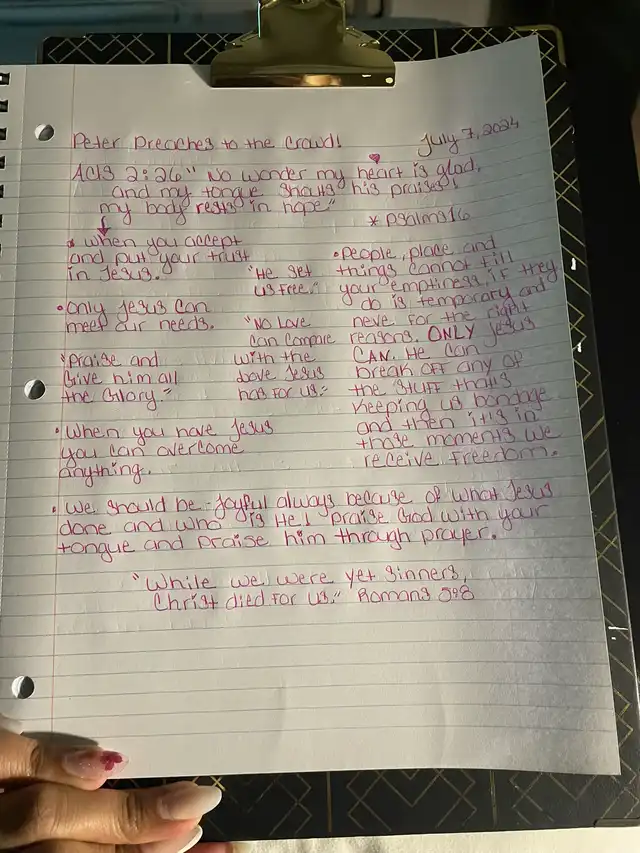 Peter Preaches to the Crowd!
July 7, 2024
Acts 2:26 "No wonder my heart is glad,
and my tongue shouts his praises!
my body rests in hope"
* Psalms 16
* When you accept
and put your trust
in Jesus.
• Only Jesus can
meet our needs.
"Praise and
Give him all
the Glory."
• When you have Jesus
you can overcome
anything.
"He set
us free."
"No Love
can compare
with the
Love Jesus
has for us."
• People, place and
things cannot fill
your emptiness, if they
do is temporary and
neve for the right
reasons. ONLY Jesus
CAN. He can
break off any of
the stuff thats
keeping us bondage
and then it is in
those moments we
receive Freedom.
• We should be joyful always because of what Jesus
done and who is He! Praise God with your
tongue and praise him through prayer.
"While we were yet sinners,
Christ died for us." Romans 5:8